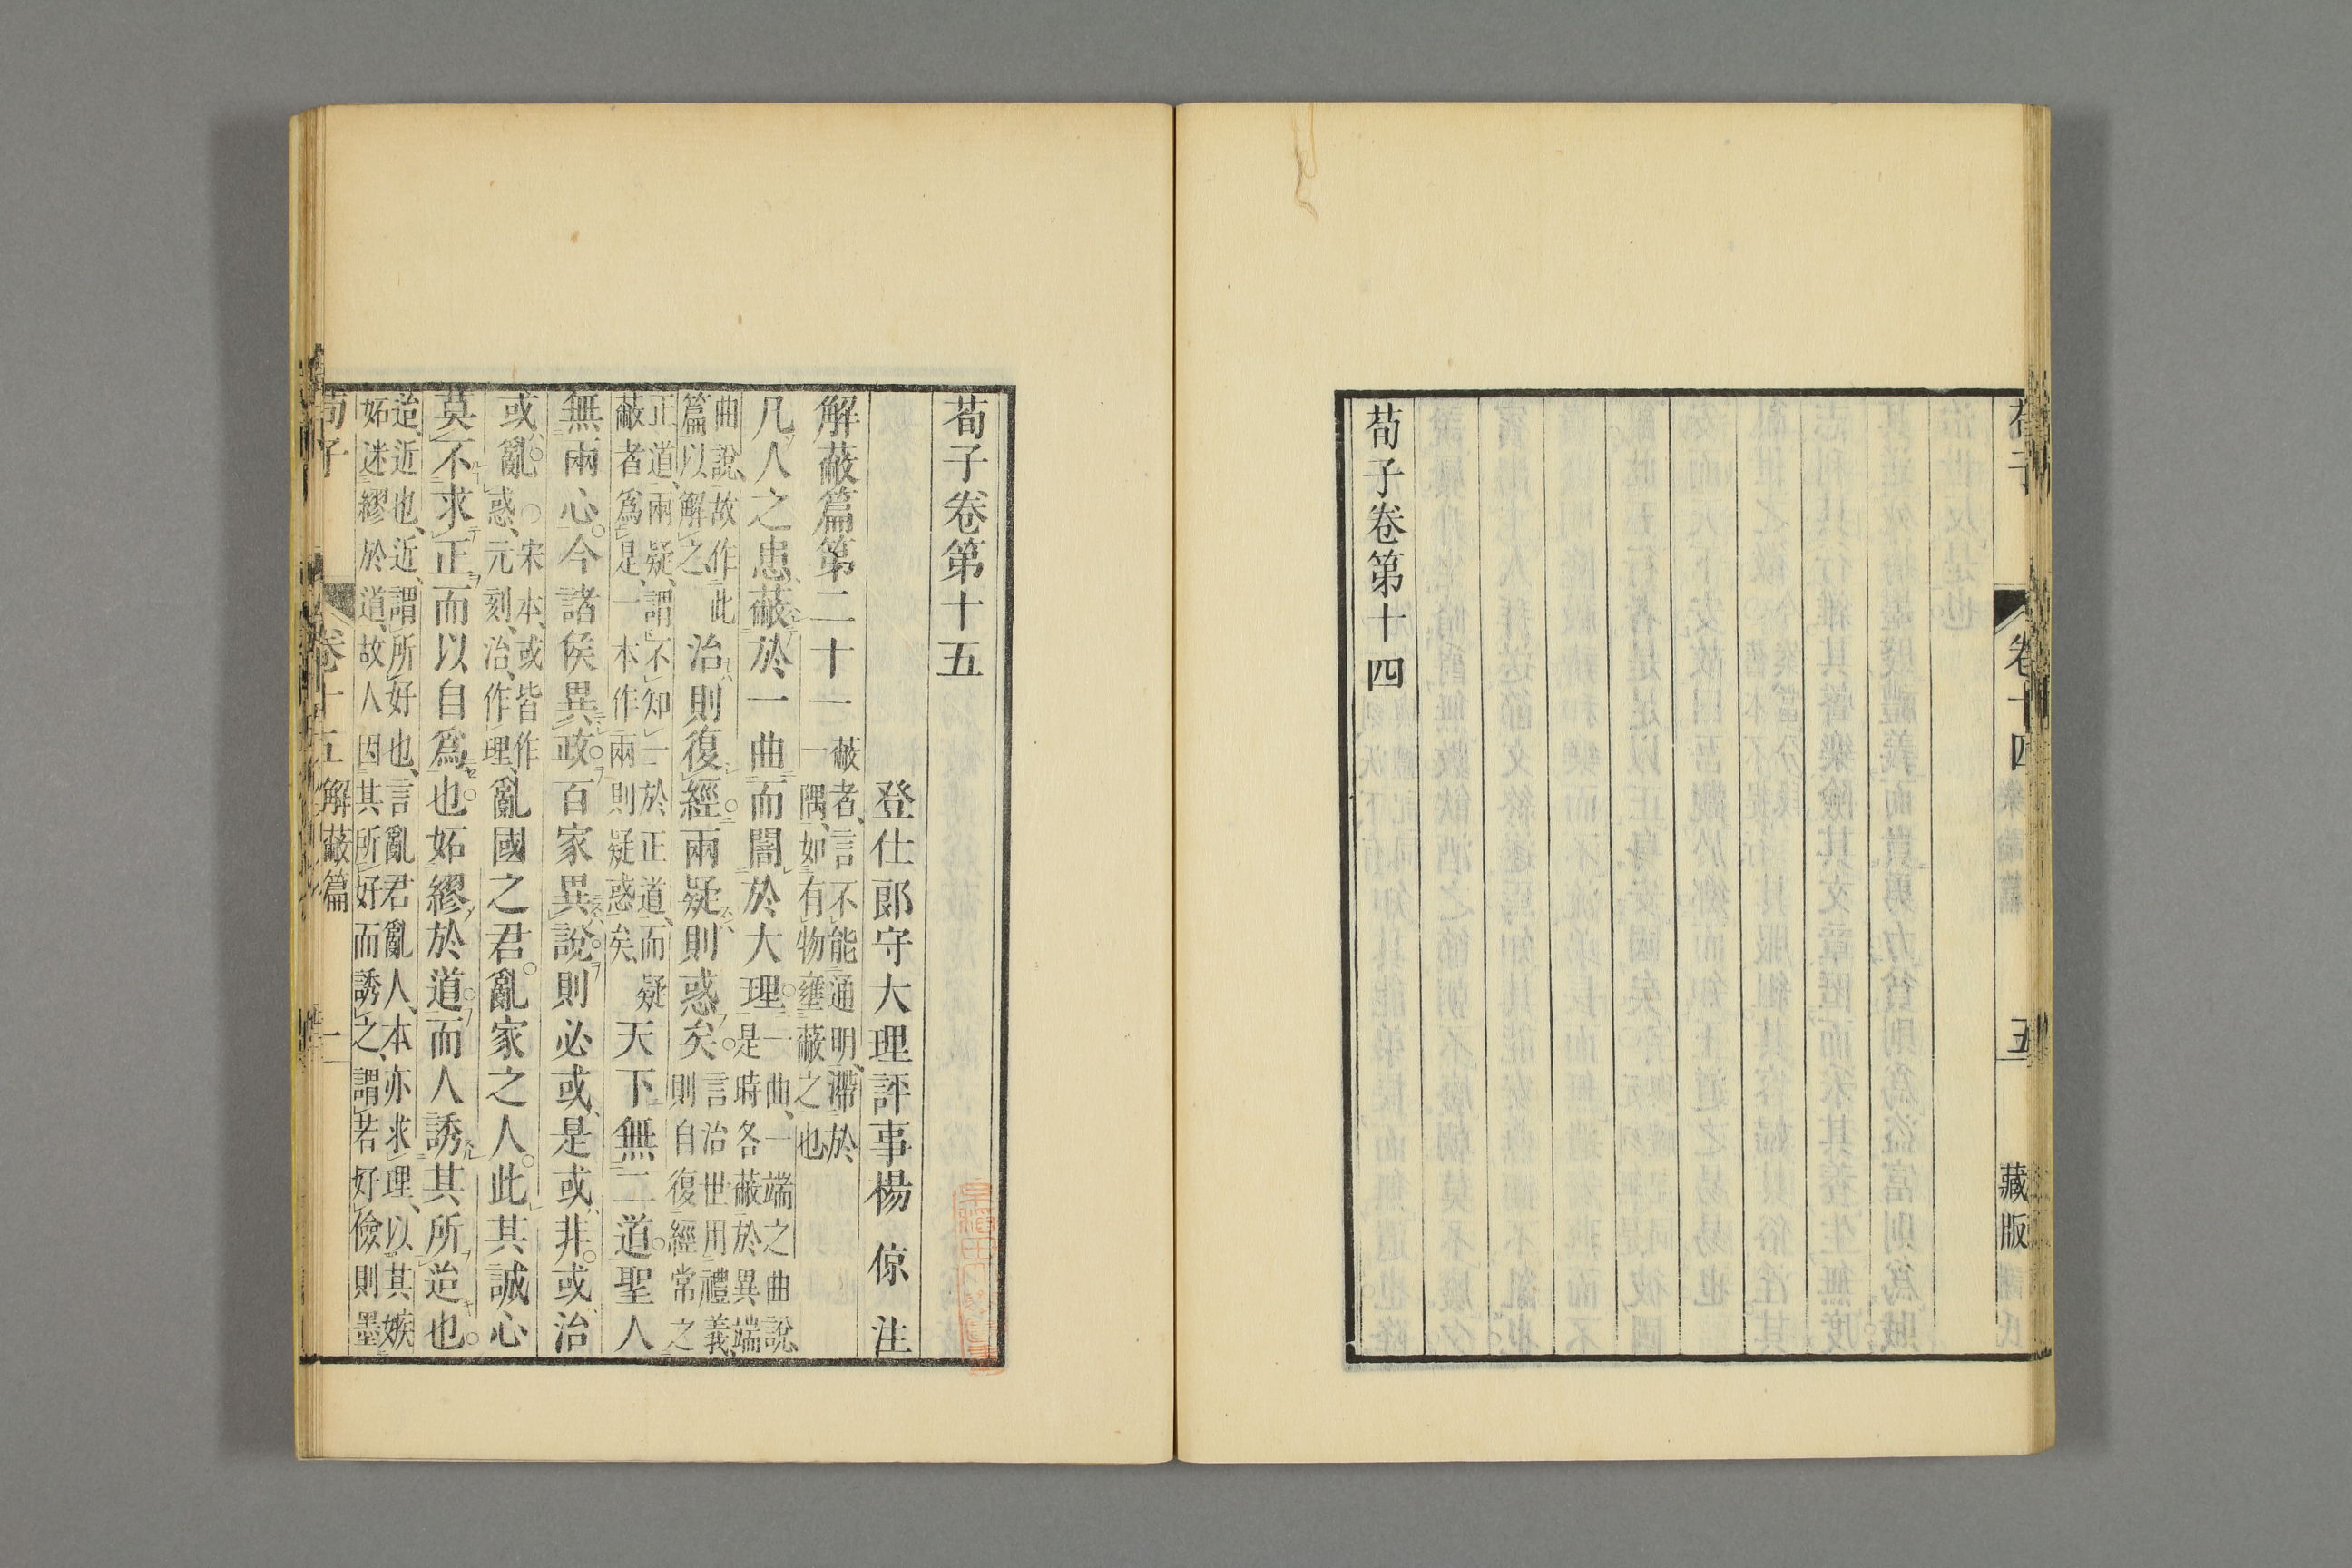 荀子卷第十四
荀子 卷十四 五 藏版
荀子卷第十五
登仕郎守大理評事楊 倞 注
解蔽篇第二十一 蔽者、言不能通明、滯於
一隅、如有物壅蔽之也
凡人之患、蔽於一曲而闇於大理。一曲、一端之曲說、
是時各蔽於異端
曲說、故作此
篇以解之 治則復經兩疑則惑矣。言治世用禮義、
則自復經常之
正道、兩疑、謂不知一於正道、而疑
蔽者爲是、一本作兩則疑惑矣、 天下無二道。聖人
無兩心。今諸侯異政。百家異說。則必或是或非。或治
或亂。○宋本、或皆作
惑、元刻、治、作理、 亂國之君。亂家之人。此其誠心
莫不求正而以自爲也。妬繆於道。而人誘其所迨也。
迨、近也、近、謂所好也、言亂君亂人、本亦求理、以其嫉
妬迷繆於道、故人因其所好而誘之、謂若好儉則墨
荀子 卷十五 解蔽篇 一